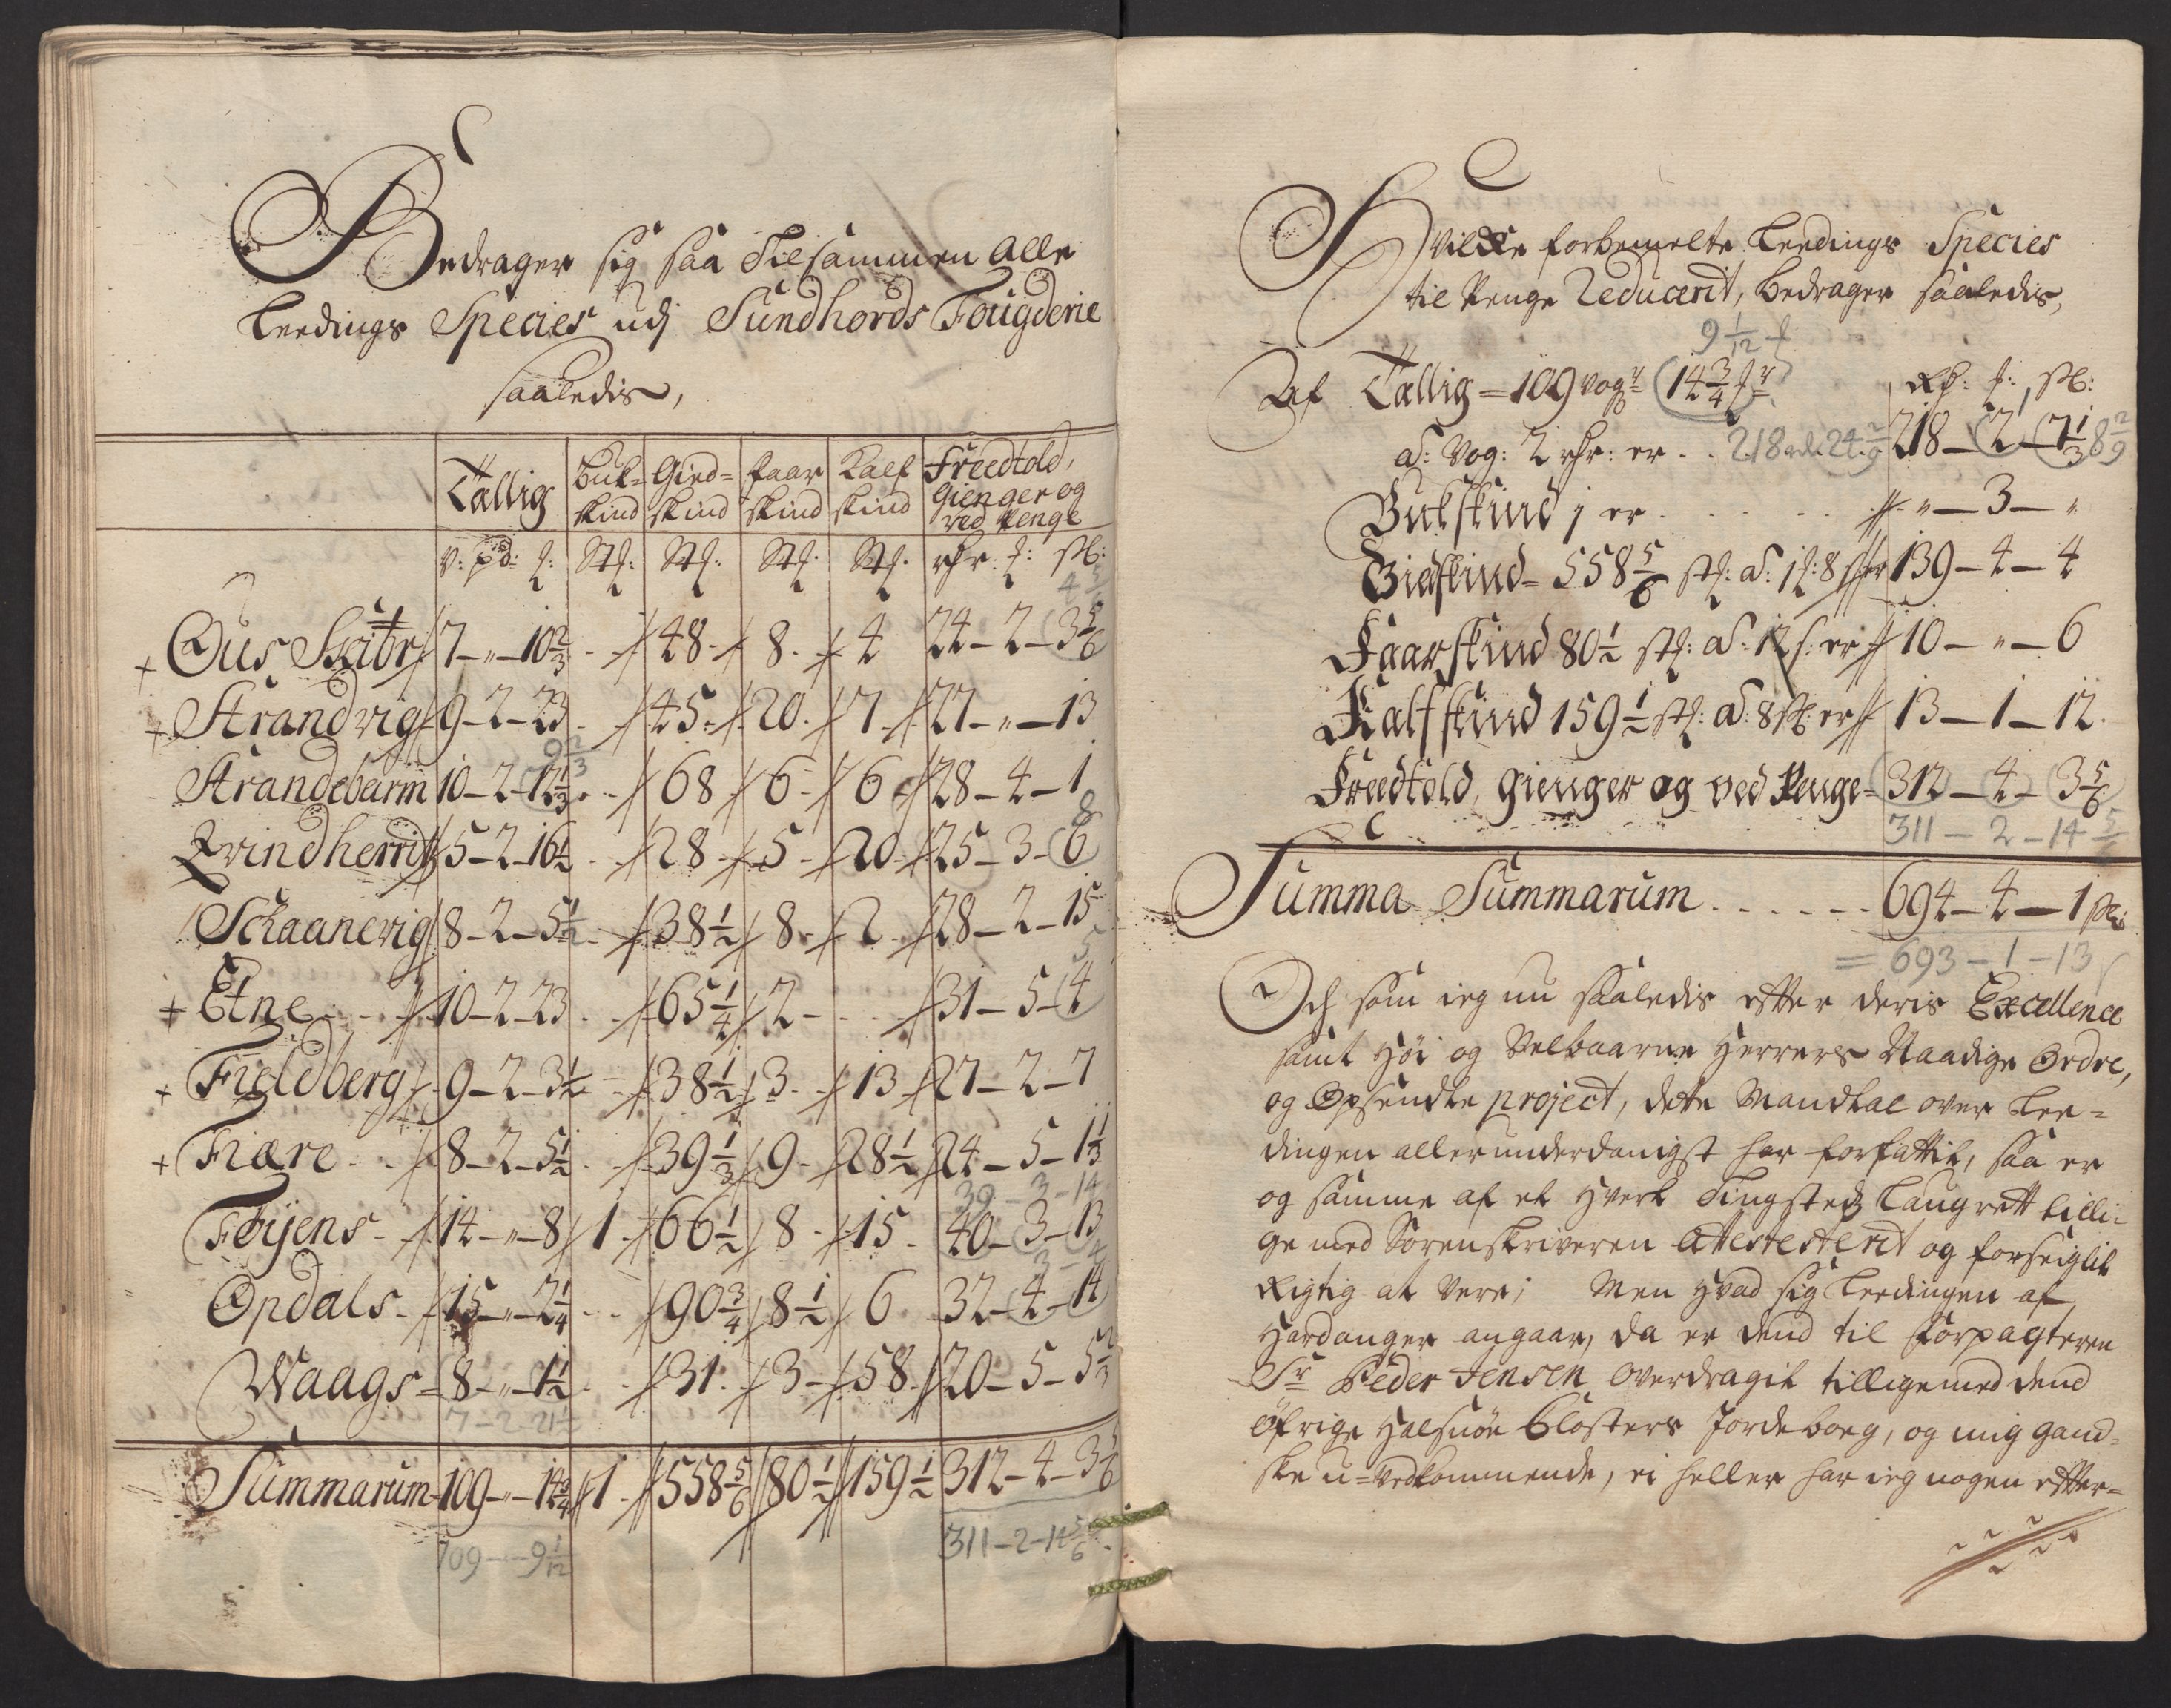 Bedrager sig saa Tilsammen alle
Leedings Species udj Sundhords Fougderie
saaledis,
Tallig Buk=skind Gied=skind Faar skind Kalf skind Freedtold, gienger og ved Penge
v: pd: Stk: Stk: Stk: Stk: rdr: s:
Ous Skibr 7-"-10 2/3 48 8 4 24-2-3 5/6 4 5/6
Strandvig 9-2-23 45 20 7 27-"-13
Strandebarm 10-2-12 1/3 9 2/3 68 6 6 28-4-1
Qvindherrit 5-2-16 1/2 28 5 20 25-3-6 8
Schaanevig 8-2-5 1/2 38 1/2 8 2 28-2-15
Etne 10-2-23 65 1/4 2 31-5-4 5
Fieldberg 9-2-3 1/2 38 1/2 3 13 27-2-7
Fiære 8-2-5 1/2 39 1/3 9 28 1/2 24-5-1 1/3
39-3-14
Føyens 14-"-8 1 66 1/2 8 15 40-3-13
Opdals 15-"-2 1/4 90 3/4 8 1/2 6 32-4-14
Waags 8-"-1 1/2 31 3 58 20-5-5 2/3
7-2-21 1/2
Summarum 109-"-14 3/4 1 558 5/6 80 1/2 159 1/2 312-4-3 5/6
109-"-9 1/12 311-2-14 5/6
Hvilke forbemelte Leedings Species
til Penge Reducerit, bedrager saaledis,
9 1/12
Af Tallig = 109 vog 14 3/4
a: vog: 2 rdr: er .. 218 rd. 24 2/9 218-2-7 1/3 8 2/9
Bukskind j er "-3-"
Giedskind = 558 5/6 stk: a: 1 s: 8 er 139-4-4
Faarskind 80 1/2 stk: a: 12 s: er 10-"-6
Kalfskind 159 1/2 stk: a: 8 er 13-1-12
Freedtold, gienger og ved Penge = 312-4-3 5/6
311-2-14 5/6
Summa Summarum 694-4-1
= 693-1-13
Och som ieg nu saaledis efter deris Excellence
samt Høi og Velbaarne Herrers Naadige Ordre,
og Opsendte project, dete Mandtal over Lee=
dingen allerunderdanigst har forfattit, saa er
og samme af et hvert Tingsteds Laugrett tilli=
ge med Sorenskriveren attesterit og forseiglit
Rigtig at være; Men hvad sig Leedingen af
Hardanger angaar, da er dend til Forpagteren
Sr Peder Jensen overdragit tilligemed dend
øfrige Halsnøe Closters Jordeboeg, og mig gand=
ske u=vedkommende, ei heller har ieg nogen efter=